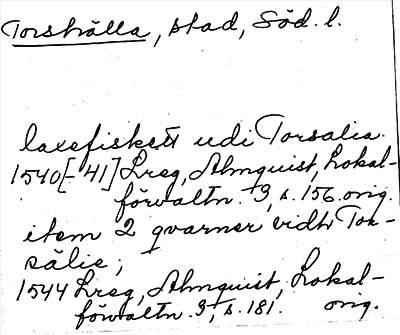 Torshälla, stad, Söd. l.
laxefiskett udi Torsalia.
1540[-41] Lreg, Almquist, Lokal-
förvaltn. 3, s. 156. orig.
item 2 qvarner vidh Tor-
sälie;
1544 Lreg, Almquist, Lokal-
förvaltn. 3, s. 181. orig.